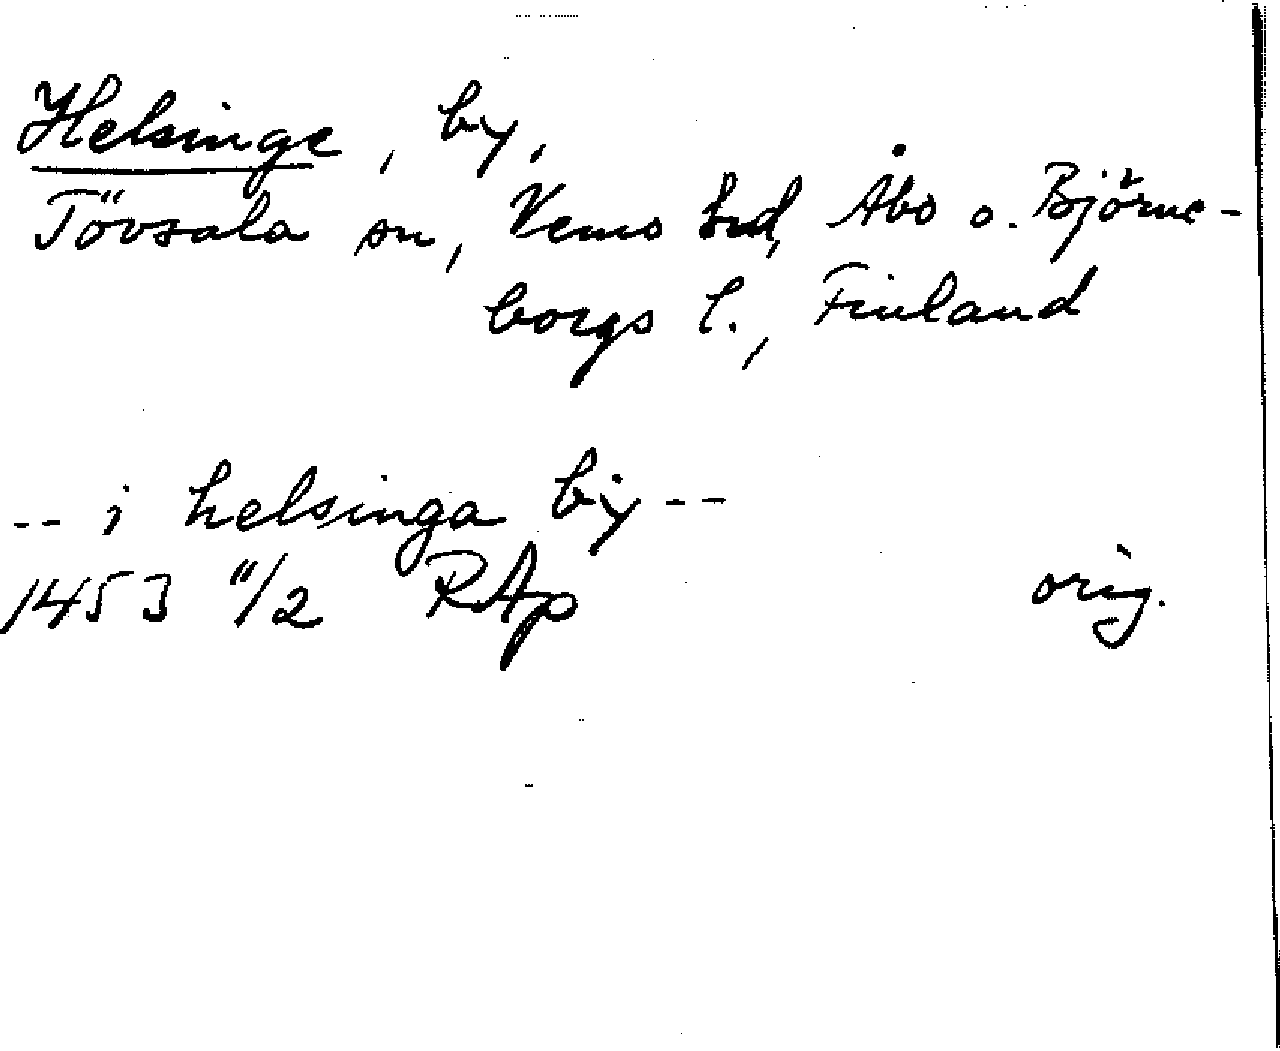 Helsinge, by,
Tövsala sn, Vemo hrd, Åbo o. Björne-
borgs l., Finland
-- i helsinga bÿ --
1453 11/2 RAp orig.